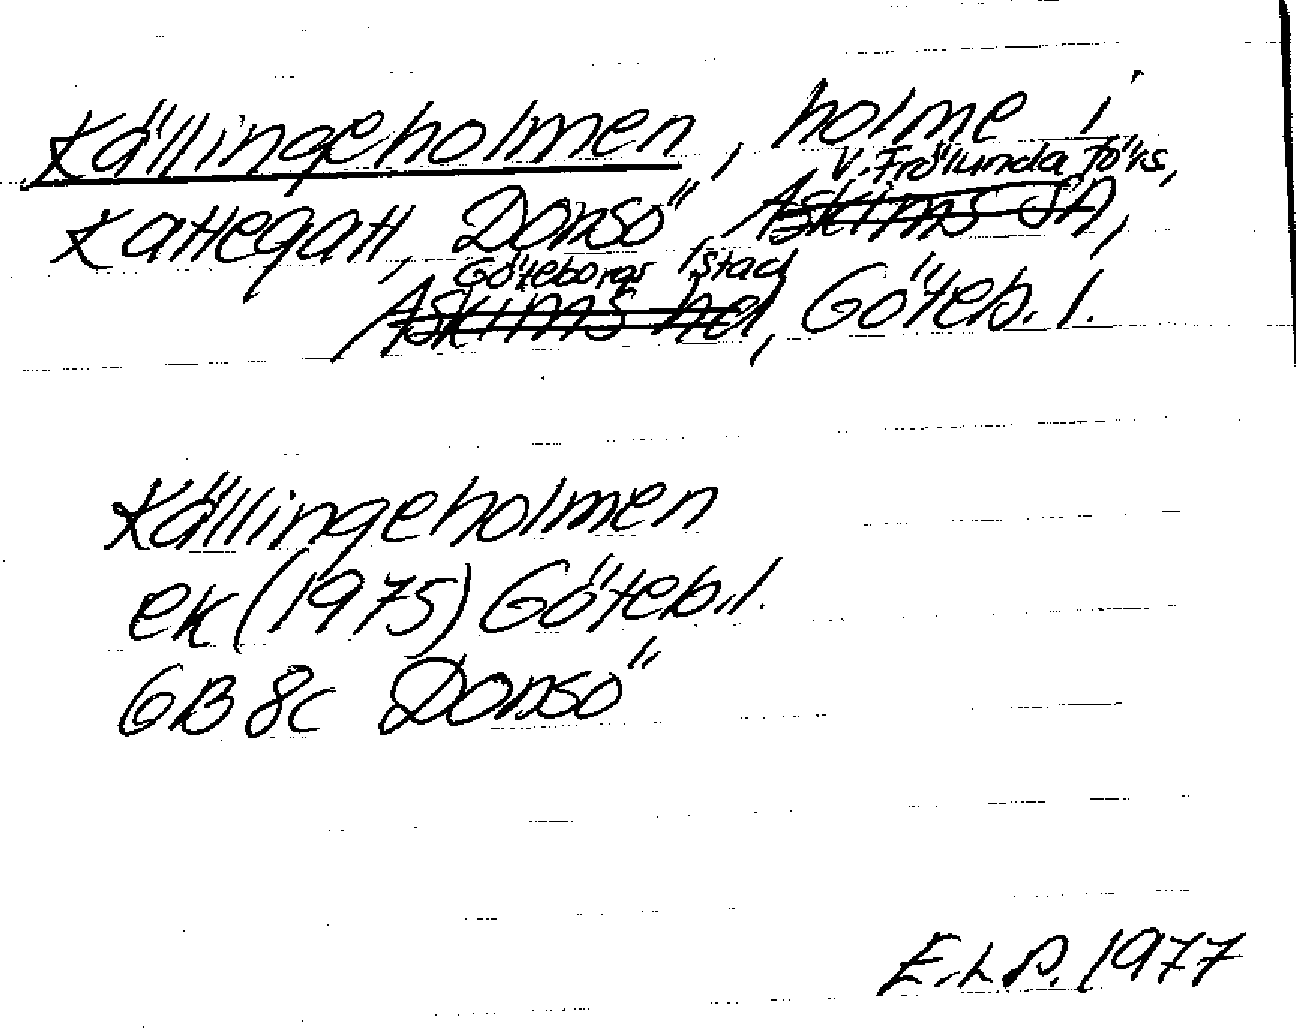 Källingeholmen, holme i
V. Frölunda förs,
Kattegatt, Donsö, Askims sn,
Göteborgs stad
Askims hd, Göteb. l.
Källingeholmen
ek (1975) Göteb. l.
GB 8c Donsö
E.L.P. 1977